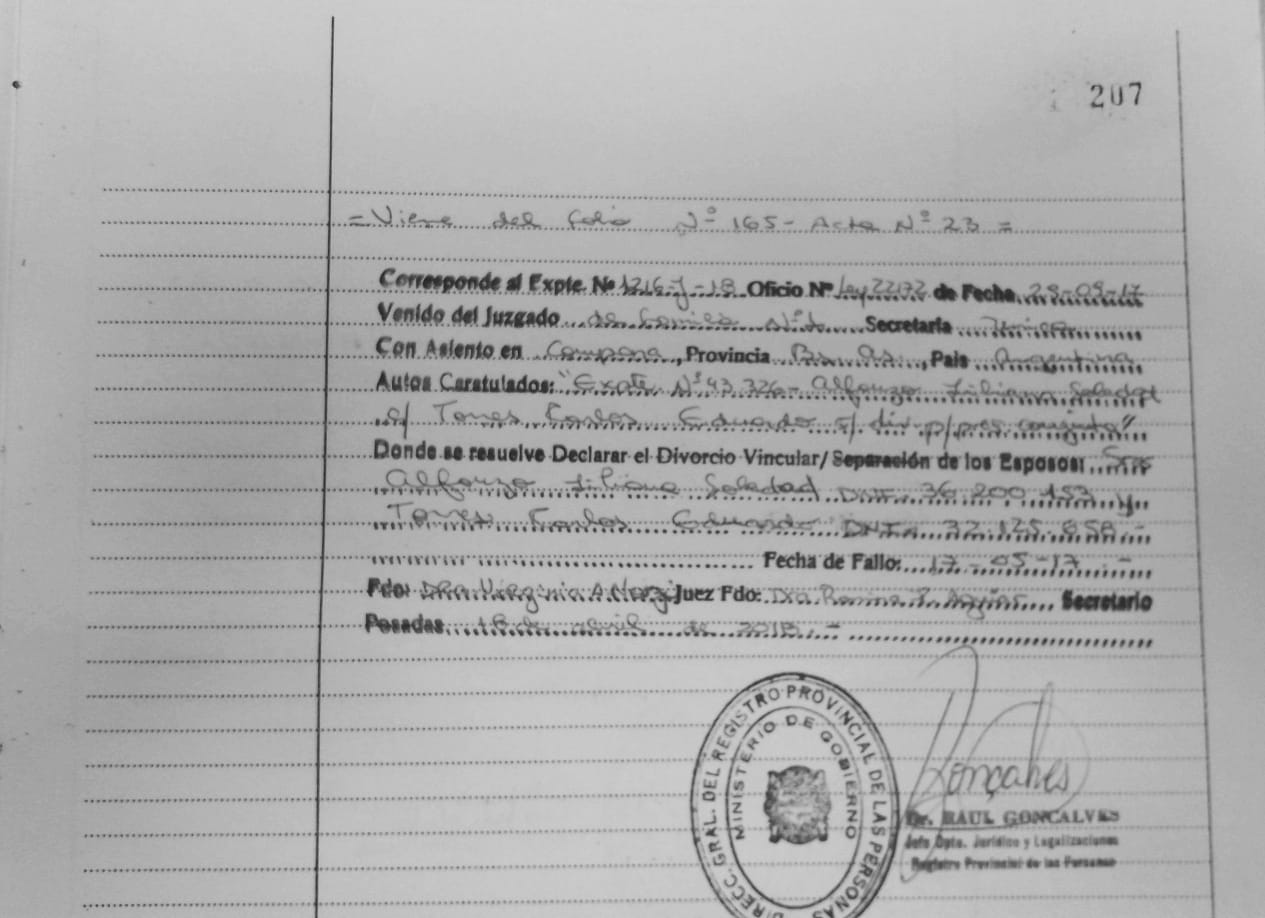 207
= Viene del folio Nº 165 - Acta Nº 23 =
Corresponde al Expte. Nº 1216-J-18 Oficio Nº Ley 22172 de Fecha 29-09-17
Venido del Juzgado de Familia Nº 1 Secretaría Única
Con Asiento en Campana, Provincia Bs. As., País Argentina
Autos Caratulados: "Expte Nº 43.326 - Alfonzo Liliana Soledad
c/ Torres Carlos Eduardo s/ div. p/pres. conjunta"
Donde se resuelve Declarar el Divorcio Vincular/ Separación de los Esposos:
Alfonzo Liliana Soledad DNI. 36.200.153 y
Torres Carlos Eduardo DNI. 32.125.858.-
Fecha de Fallo: 17-05-17.-
Fdo: Dra Virginia A. Juez Fdo: Dra Romina Secretario
Posadas, 18 de abril de 2018.-
DIRECC. GRAL. DEL REGISTRO PROVINCIAL DE LAS PERSONAS
MINISTERIO DE GOBIERNO
Gonçalves
Dr. RAUL GONCALVES
Jefe Dpto. Jurídico y Legalizaciones
Registro Provincial de las Personas